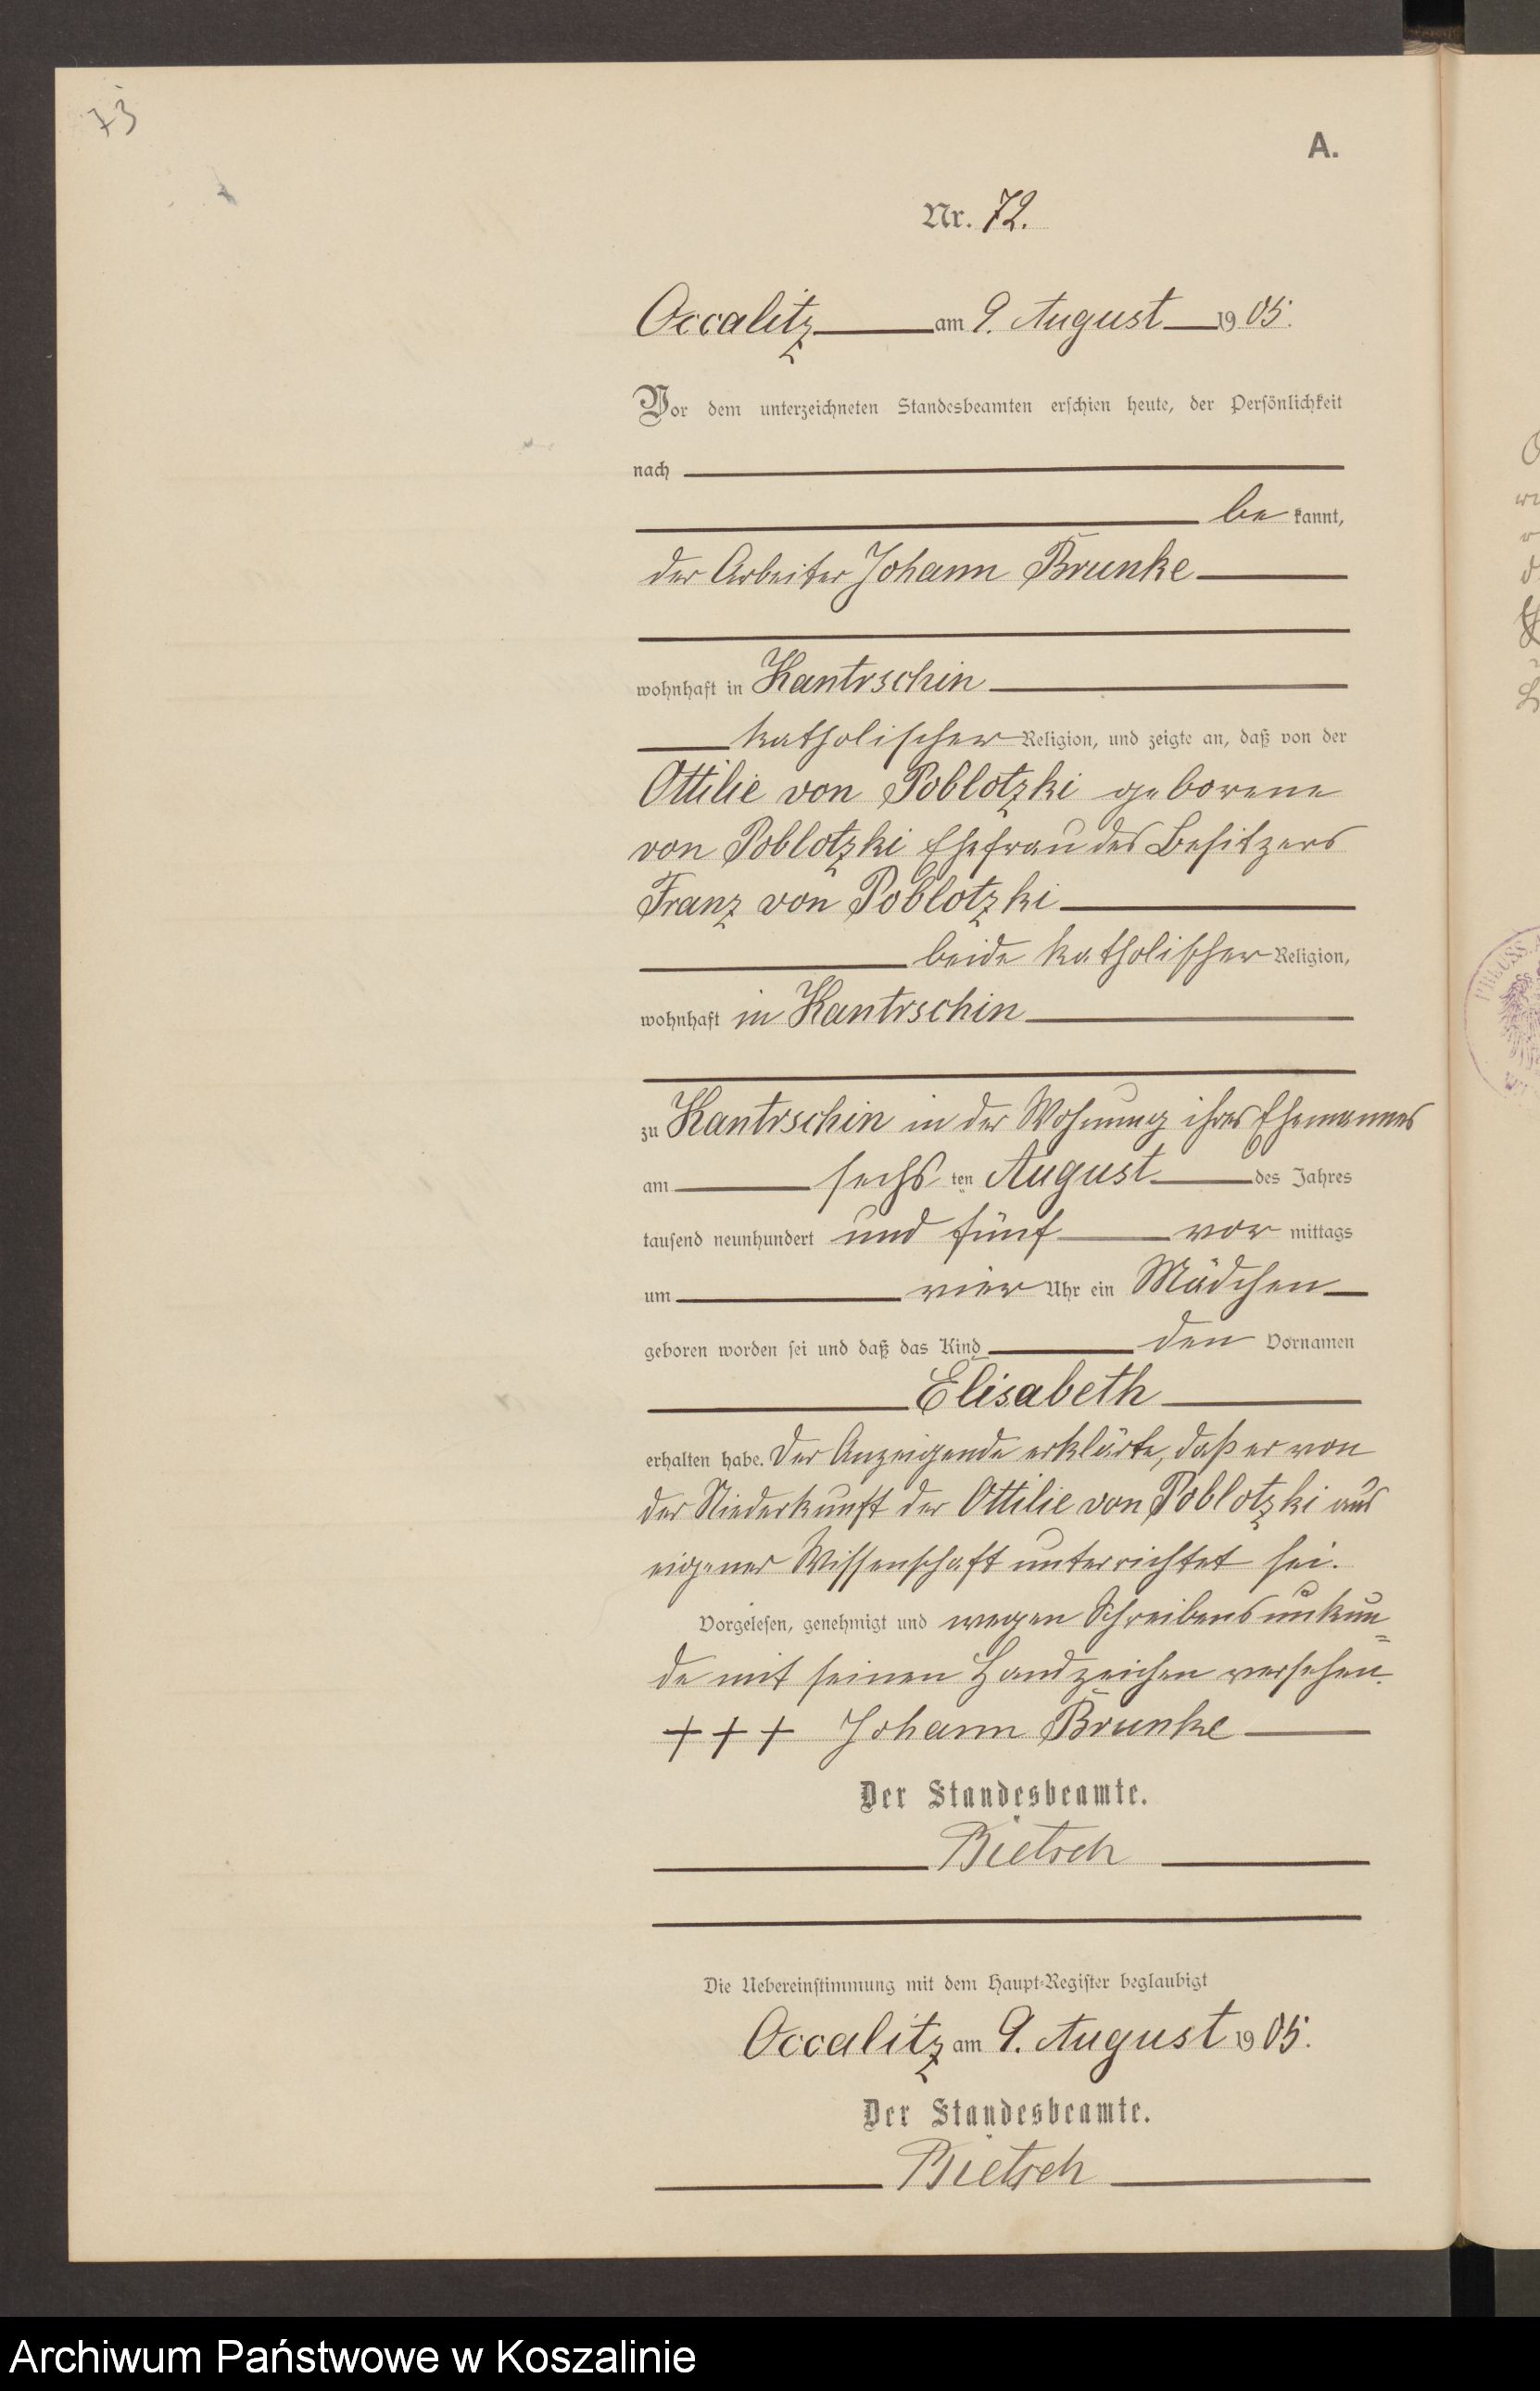 73
A.
Nr. 72.
Occalitz am 9. August 1905.
Vor dem unterzeichneten Standesbeamten erschien heute, der Persönlichkeit
nach
be kannt,
der Arbeiter Johann Brunke
wohnhaft in Kantrschin
katholischer Religion, und zeigte an, daß von der
Ottilie von Poblotzki geborene
von Poblotzki Ehefrau des Besitzers
Franz von Poblotzki
beide katholischer Religion,
wohnhaft in Kantrschin
zu Kantrschin in der Wohnung ihres Ehemannes
am sechs ten August des Jahres
tausend neunhundert und fünf vor mittags
um vier Uhr ein Mädchen
geboren worden sei und daß das Kind den Vornamen
Elisabeth
erhalten habe. Der Anzeigende erklärte, daß er von
der Niederkunft der Ottilie von Poblotzki aus
eigener Wissenschaft unterrichtet sei.
Vorgelesen, genehmigt und wegen Schreibensunkun=
de mit seinen Handzeichen versehen.
+++ Johann Brunke
Der Standesbeamte.
Bietsch
Die Uebereinstimmung mit dem Haupt-Register beglaubigt
Occalitz am 9. August 1905.
Der Standesbeamte.
Bietsch
PREUSS.
Archiwum Państwowe w Koszalinie